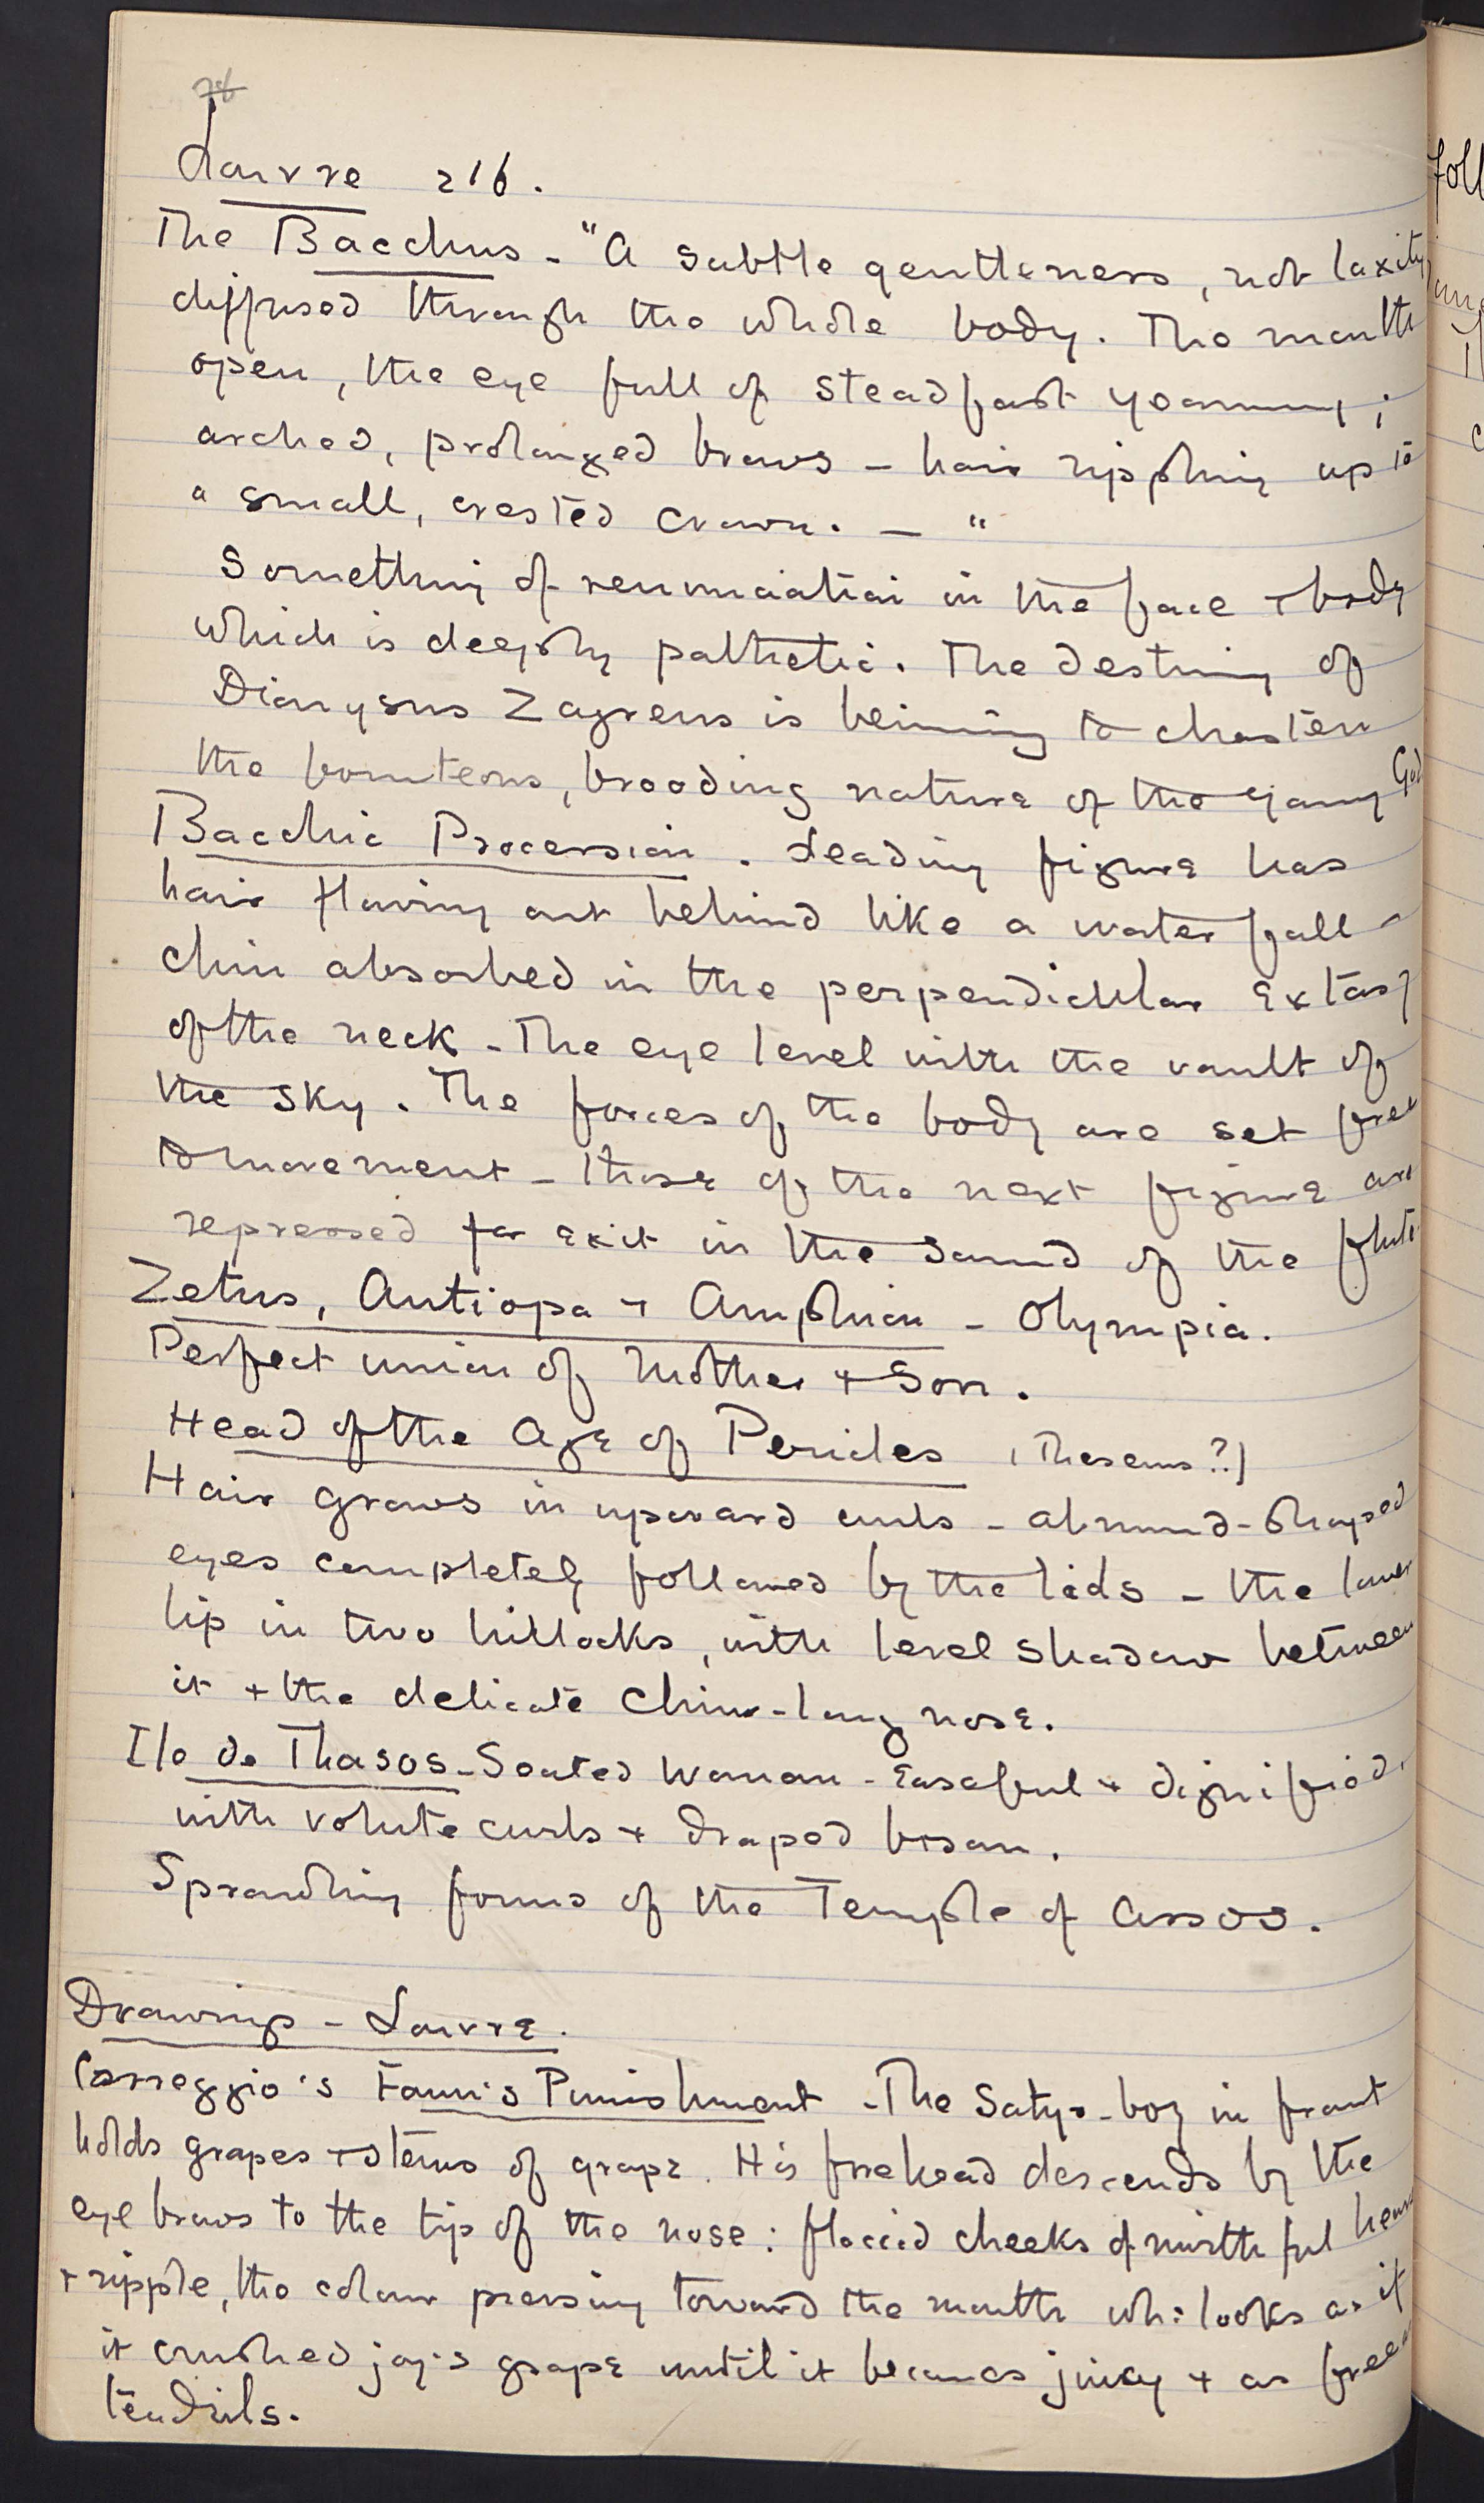 78
Louvre 216.
The Bacchus - "A subtle gentleness, not laxity
diffused through the whole body. The mouth
open, the eye full of steadfast yearning;
arched, prolonged brows - hair rippling up to
a small, crested crown. - "
Something of renunciation in the face + body
which is deeply pathetic. The destiny of
Dionysus Zagreus is beining to chasten
the bounteous, brooding nature of the young God
Bacchic Procession. Leading figure has
hair flowing out behind like a water fall -
chin absorbed in the perpendicular extasy
of the neck - The eye level with the vault of
the sky. The forces of the body are set free
to movement - those of the next figure are
repressed for exit in the sound of the flute.
Zetus, Antiopa + Amphion - Olympia.
Perfect union of Mother + Son.
Head of the Age of Pericles (Theseus??)
Hair grows in upward curls - almond-shaped
eyes completely followed by the lids - the lower
lip in two hillocks, with level shadow between
it + the delicate chin - long nose.
Ile de Thasos - Seated Woman - Easeful + dignified.
with volute curls + draped bosom.
Sprawling forms of the Temple of Assos.
Drawings - Louvre.
Correggio's Faun's Punishment - The Satyr-boy in front
holds grapes + stems of grape. His forehead descends by the
eye brows to the tip of the nose: flaccid cheeks of mirthful
+ ripple, the colour pressing toward the mouth wh: looks as if
it crushed joy's grape until it becomes juicy + as free as
tendrils.
foll